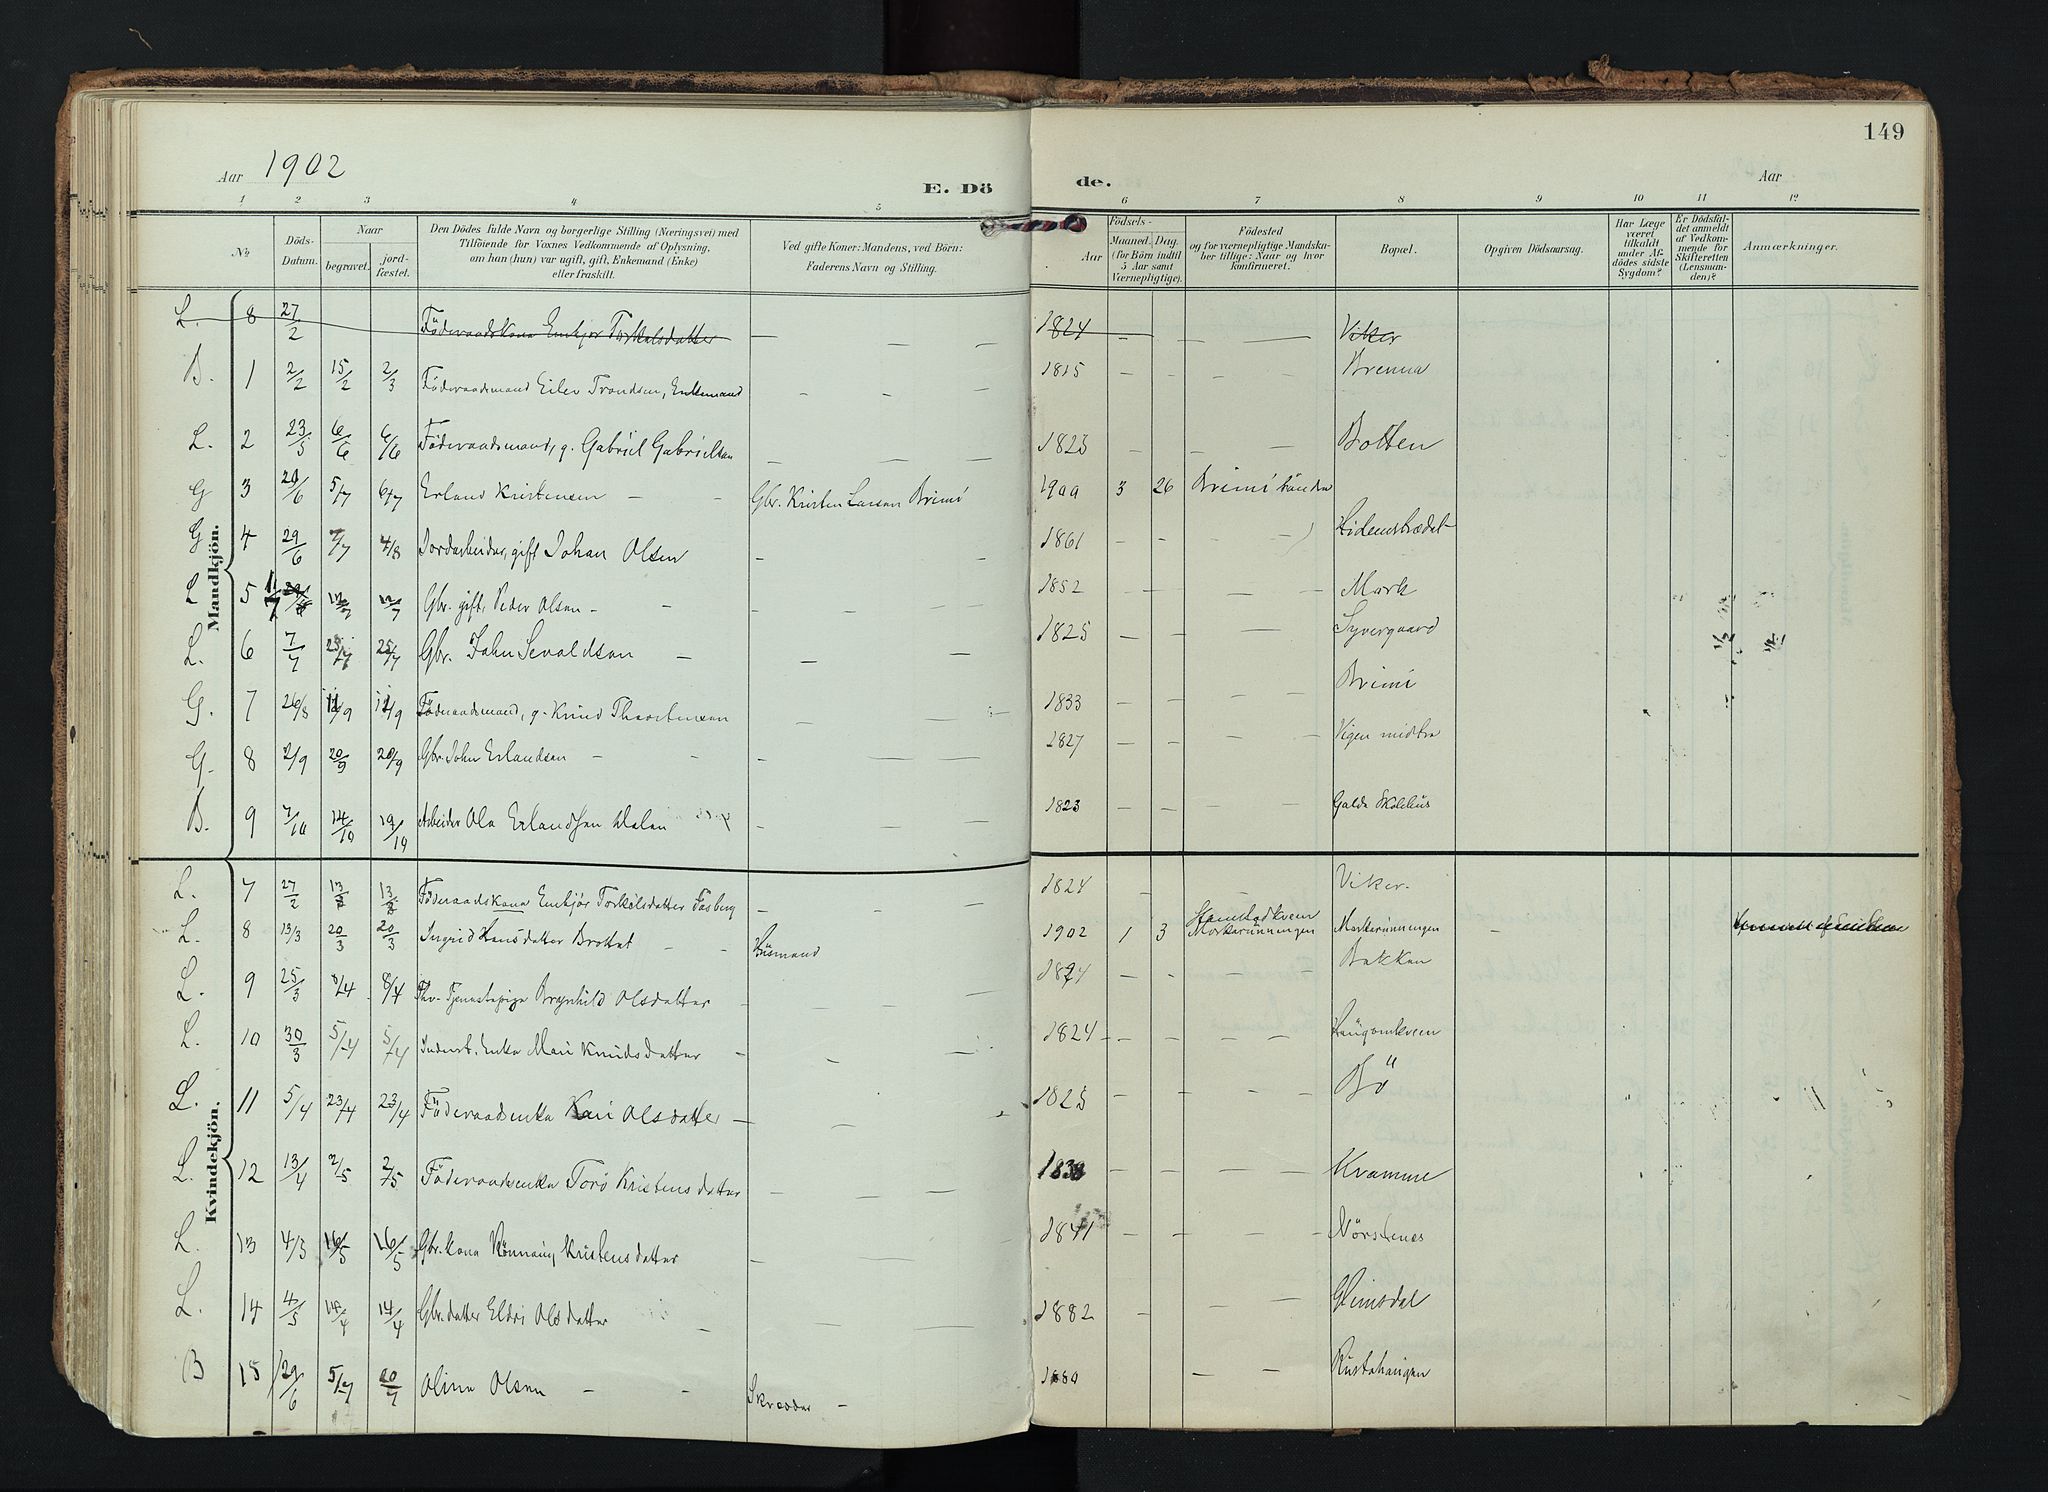 149
Aar 1902
E. Dö de.
Aar
1 2 3 4 5 6 7 8 9 10 11 12
No
Döds-Datum.
Naar
begravet.
jord-fæstet.
Den Dödes fulde Navn og borgerlige Stilling (Næringsvei) med
Tilföiende for Voxnes Vedkommende af Oplysning,
om han (hun) var ugift, gift, Enkemand (Enke)
eller fraskilt.
Ved gifte Koner: Mandens, ved Börn:
Faderens Navn og Stilling.
Födsels-
Aar
Maaned. Dag.
(for Börn indtil
5 Aar samt
Værnepligtige).
Födested
og for værnepligtige Mandska-
ber tillige: Naar og hvor
konfirmeret.
Bopæl.
Opgiven Dödsaarsag.
Har Læge
været
tilkaldt
under Af-
dödes sidste
Sygdom?
Er Dödsfal-
det anmeldt
af Vedkom-
mende for
Skifteretten
(Lensman-
den)?
Anmærkninger.
Mandkjön.
L. 8 27/2 Föderaadskona Embjor Torkelsdatter — — — 1824 — — — Viker
B. 1 2/2 15/2 2/3 Föderaadsmand Eilev Trondsen, Enkemand - - - 1815 - - - - Brenna
L. 2 23/5 6/6 6/6 Föderaadsmand, g. Gabriel Gabrielsen — — — 1823 — - — Botten
G 3 20/6 5/7 6/7 Erland Kristensen - - Gbr. Kristen Larsen Brimi 1900 3 26 Brimi söndre
G 4 29/6 7/7 4/8 Jordarbeider, gift Johan Olsen - - 1861 - - - - Hidemstrædet
L 5 11/7 12/7 12/7 Gbr. gift, Peder Olsen - - - - - - 1852 — - - Mork
L. 6 7/7 25/7 25/7 Gbr. John Sevaldsen — — — 1825 — — — Syvergaard
G. 7 26/8 11/9 11/9 Föderaadsmand, g. Knud Thorstensen — — — 1833 — — - - Brimi
G. 8 2/9 20/9 20/9 Gbr. John Erlandsen - - - — — 1827 — — - - Vigen midtre
B. 9 7/10 14/10 19/10 Arbeider Ola Erlandsen Dalen - — — 1823 — — - - Galde Skolehus
Kvindekjön.
L. 7 27/2 13/3 13/3 Föderaadskona Embjör Torkelsdatter Fosberg — — - 1824 — — Viker. -
L. 8 13/3 20/3 20/3 Ingrid Hansdatter Brottet - - Husmand 1902 1 3 Stamstadkvem Morkarünningen Morkarünningen
L. 9 25/3 8/4 8/4 Tjenestepige Brynhild Olsdatter - — - 1874 — - - - Bakken
L. 10 30/3 5/4 5/4 Inderst. Enke Mari Knudsdatter - - — 1824 - - - - - Haugomkvem
L. 11 5/4 23/4 23/4 Föderaadsenka Kari Olsdatter — — — 1825 — — - - Bö
L. 12 13/4 2/5 2/5 Föderaadsenka Torö Kristensdatter - — — 183 — — — — Kvamme
L. 13 4/5 16/5 16/5 Gbr. kona Rönnaug Kristensdatter — — — 1841 — — — — Nörstenes
L. 14 4/5 14/4 14/4 Gbr. datter Eldri Olsdatter — — — 1882 — - - Glimsdal
B 15 29/6 5/7 20/7 Olina Olsen - - Skrædder - 1880 — — Rustahaugen